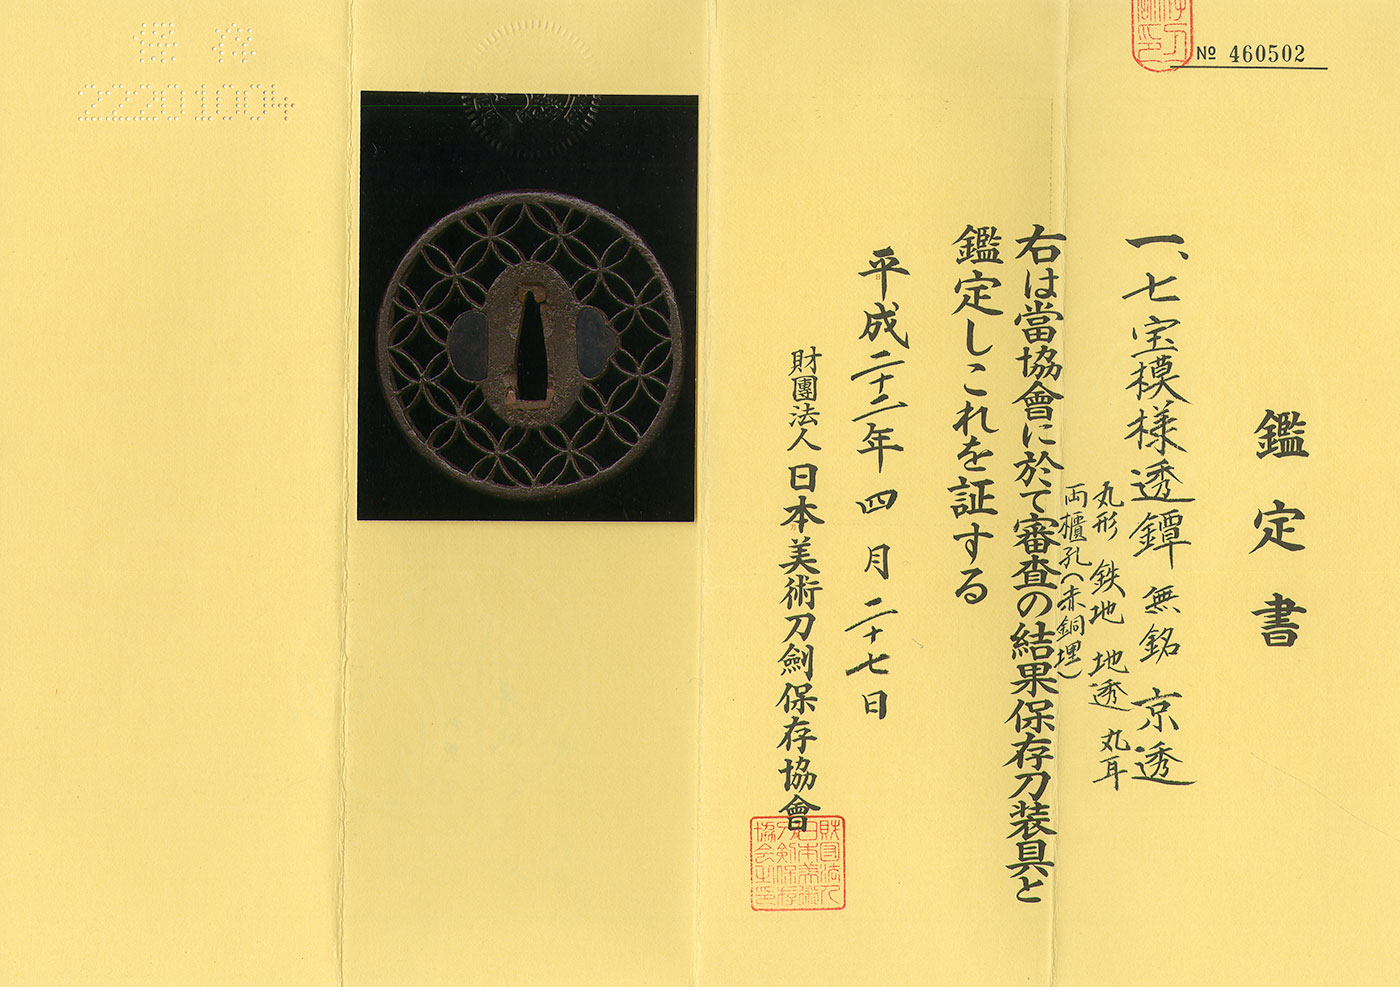 № 460502
鑑定書
一、七宝模様透鐔 無銘 京透
丸形 鉄地 地透 丸耳
両櫃孔(赤銅埋)
右は當協會に於て審査の結果保存刀装具と
鑑定しこれを証する
平成二十二年四月二十七日
財團法人日本美術刀劍保存協會
財団法人
日本美術
刀剣保存
協会之印
保存
22201004